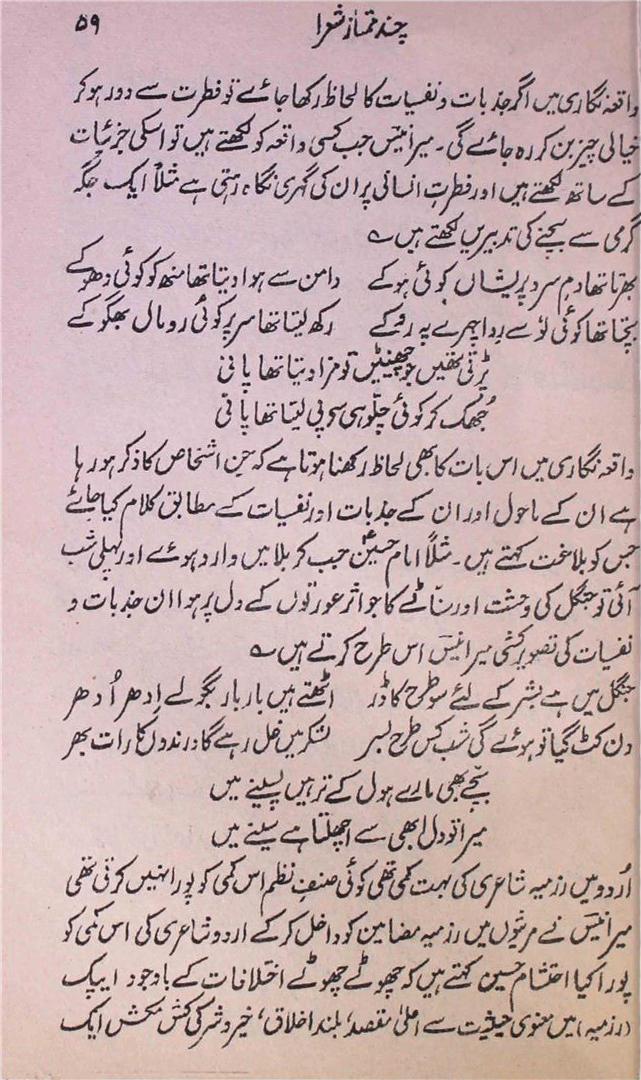 چند ممتاز شعرا ۵۹
واقعہ نگاری میں اگر جذبات و نفسیات کا لحاظ رکھا جائے تو فطرت سے دور ہو کر
خیالی چیز بن کر رہ جائے گی۔ میر انیسؔ جب کسی واقعہ کو لکھتے ہیں تو اسکی جزئیات
کے ساتھ لکھتے ہیں اور فطرتِ انسانی پر ان کی گہری نگاہ رہتی ہے مثلاً ایک جگہ
گرمی سے بچنے کی تدبیریں لکھتے ہیں ؎
بھرتا تھا دمِ سرد پریشاں کوئی ہو کے دامن سے ہوا دیتا تھا منھ کو کوئی دھو کے
بچتا تھا کوئی لوٗ سے رِدا چہرے پہ رو کے رکھ لیتا تھا سر پر کوئی رومال بھگو کے
پڑتی تھیں جو چھینٹیں تو مزا دیتا تھا پانی
جُھک کر کوئی چلّو ہی سے پی لیتا تھا پانی
واقعہ نگاری میں اس بات کا بھی لحاظ رکھنا ہوتا ہے کہ جن اشخاص کا ذکر ہو رہا
ہے ان کے ماحول اور ان کے جذبات اور نفسیات کے مطابق کلام کیا جائے
جس کو بلاغت کہتے ہیں۔ مثلاً امام حسینؑ جب کربلا میں وارد ہوئے اور پہلی شب
آئی تو جنگل کی وحشت اور سنّاٹے کا جو اثر عورتوں کے دل پر ہوا ان جذبات و
نفسیات کی تصویر کشی میر انیسؔ اس طرح کرتے ہیں ؎
جنگل میں ہے بشر کے لئے سو طرح کا ڈر اٹھتے ہیں بار بار بگولے اِدھر اُدھر
دن کٹ گیا تو ہوئے گی شب کس طرح بسر لشکر میں غل رہے گا درندوں کا رات بھر
بچّے بھی مارے ہول کے تر ہیں پسینے میں
میرا تو دل ابھی سے اچھلتا ہے سینے میں
اُردو میں رزمیہ شاعری کی بہت کمی تھی کوئی صنفِ نظم اس کمی کو پورا نہیں کرتی تھی
میر انیسؔ نے مرثیوں میں رزمیہ مضامین کو داخل کر کے اردو شاعری کی اس کمی کو
پورا کیا احتشام حسین کہتے ہیں کہ چھوٹے چھوٹے اختلافات کے باوجود ایپک
(رزمیہ) میں معنوی حیثیت سے اعلیٰ مقصد، بلند اخلاق، خیر و شر کی کش مکش ایک